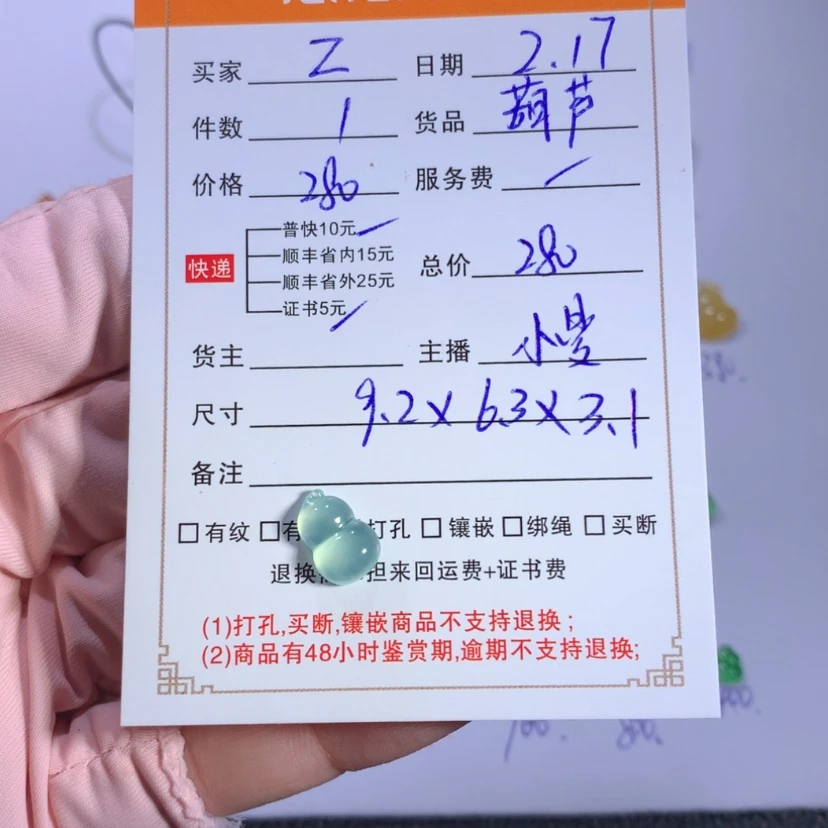 买家 Z 日期 2.17
件数 1 货品 葫芦
价格 280 服务费
普快10元
顺丰省内15元
快递
顺丰省外25元
总价 280
证书5元
货主 主播 小
尺寸 9.2X6.3X3.1
备注
有纹 有 打孔 镶嵌 绑绳 买断
退换 担来回运费+证书费
(1)打孔,买断,镶嵌商品不支持退换;
(2)商品有48小时鉴赏期,逾期不支持退换;